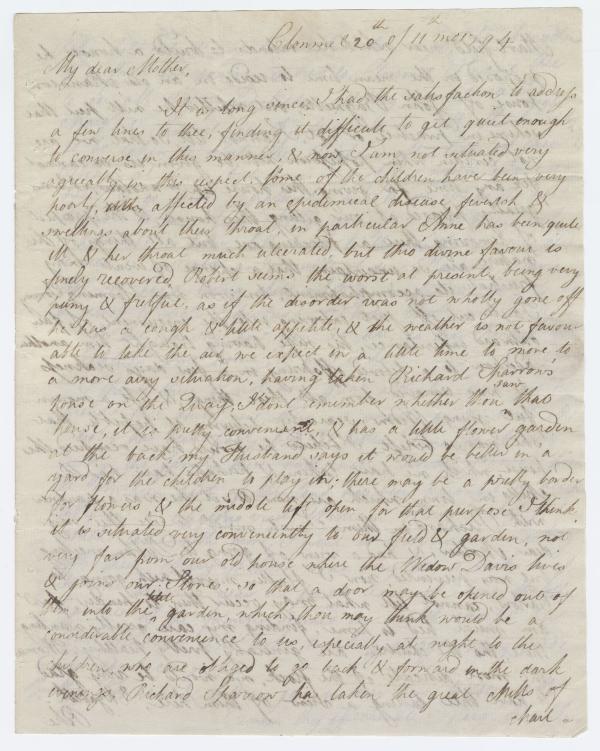 Clonmel 20th of 11th mo: 94
My dear Mother,
It is long since I had the satisfaction to address
a few lines to thee, finding it difficult to get quiet enough
to converse in this manner, & now I am not situated very
agreeably in this respect. Some of the children have been very
poorly, affected by an epidemical disease, feverish &
swellings about their throat, in particular Anne has been quite
ill & her throat much ulcerated, but thro' divine favour is
finely recovered, Robert seems the worst at present, being very
puny & fretful, as if the disorder was not wholly gone off
he has a cough & little appetite, & the weather is not favour
able to take the air, we expect in a little time to move to
a more airy situation, having taken Richard Sparrow's
house on the Quay, I dont remember whether thou saw that
house, it is pretty convenient, & has a little flower garden
at the back, my Husband says it would be better in a
yard for the children to play in; there may be a pretty border
for flowers, & the middle left open for that purpose I think
it is situated very conveniently to our field & garden, not
very far from our old house where the Widow Davis lives
& joins our Stores, so that a door may be opened out of
into the little garden, which thou may think would be a
considerable convenience to us, especially at night to the
children, who are obliged to go back & forward in the dark
evenings. Richard Sparrow has taken the great Mills of
Marl-